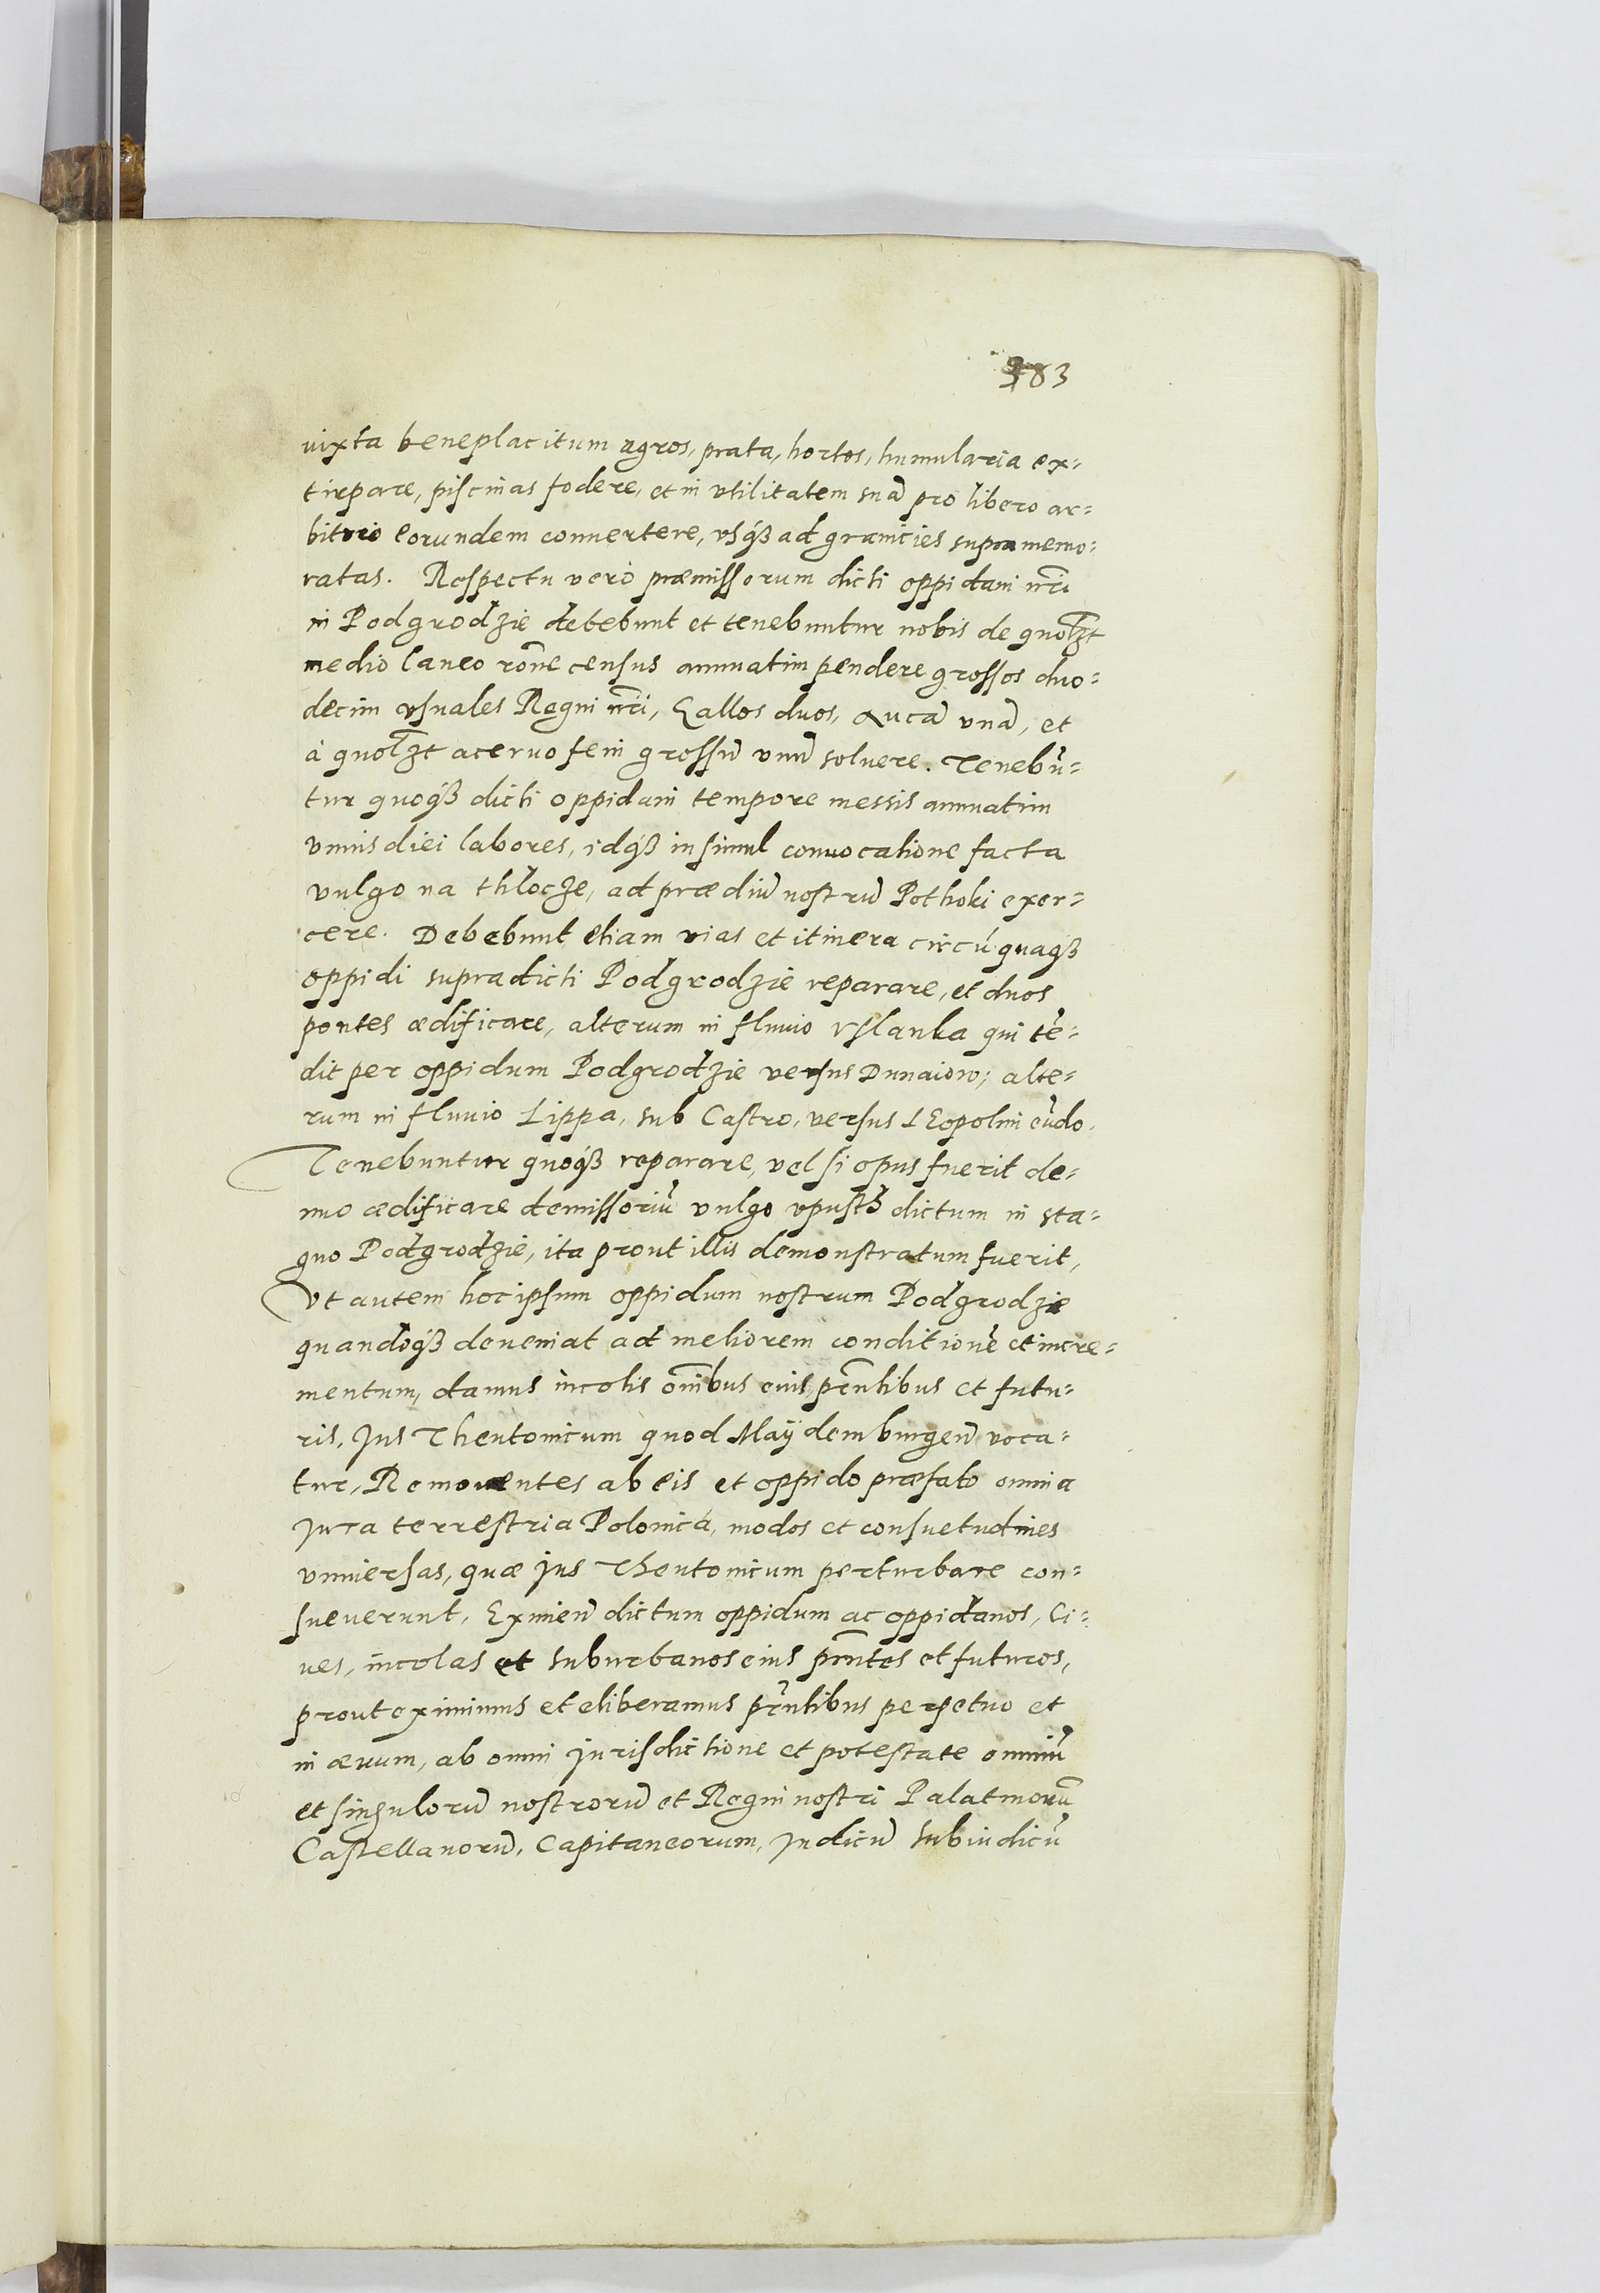 383
iuxta beneplacitum agros, prata, hortos, humularia ex=
tirpare, piscinas fodere, et in vtilitatem suã pro libero ar=
bitrio eorundem conuertere, vsqȝ ad granicies supra memo=
ratas. Respectu verò præmissorum dicti oppidani nr̃i
in Podgrodzie debebunt et tenebuntur nobis de quolꝫt
medio laneo rõne census annuatim pendere grossos duo=
decim vsuales Regni nr̃i, Gallos duos, Aucã vnã, et
à quolꝫt aceruo feni grossũ vnũ soluere. Tenebũ=
tur quoqȝ dicti oppidani tempore messis annuatim
vnius diei labores, idqȝ insimul conuocatione facta
vulgo na thlocze, ad prædiũ nostrũ Pothoki exer=
cere. Debebunt etiam vias et itinera circúquaqȝ
oppidi supradicti Podgrodzie reparare, et duos
pontes ædificare, alterum in fluuio Vslanka qui tẽ=
dit per oppidum Podgrodzie versus Dunaiow; alte=
rum in fluuio Lippa, sub Castro, versus LEopolim eũdo.
Tenebuntur quoqȝ reparare, vel si opus fuerit de=
nuo ædificare demissoriũ vulgo vpusth dictum in sta=
gno Podgrodzie, ita prout illis demonstratum fuerit,
Vt autem hoc ipsum oppidum nostrum Podgrodzie
quandoqȝ deueniat ad meliorem conditionẽ et incre=
mentum, damus incolis oĩnibus eius, prñtibus et futu=
ris, Jus Theutonicum quod Maÿdemburgeñ voca=
tur, Remouentes ab eis et oppido præfato omnia
Jura terrestria Polonicá, modos et consuetudines
vniuersas, quæ Jus Theutonicum perturbare con=
sueuerunt, Eximeñ dictum oppidum ac oppidanos, Ci=
ues, incolas et suburbanos eius prñtes et futuros,
prout eximimus et eliberamus prñtibus perpetuo et
in æuum, ab omni Jurisdictione et potestate omniũ
et singulorũ nostrorũ et Regni nostri Palatinorũ
Castellanorũ, Capitaneorum, Judicũ Subiudicũ